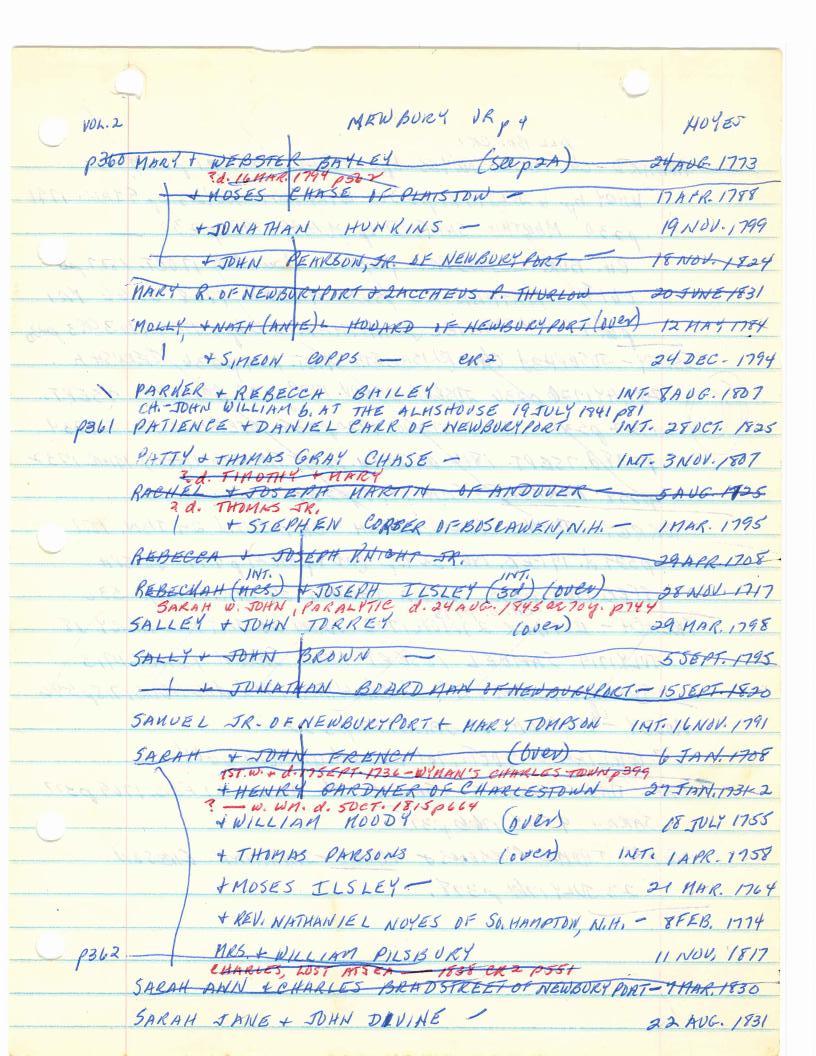 VOL. 2 NEWBURY VR p 4 NOYES
p360 MARY + WEBSTER BAYLEY (See p2A) 24 AUG. 1773
?d. 16 MAR. 1794 p362
+ MOSES CHASE OF PLAISTOW — 17 APR. 1788
+ JONATHAN HUNKINS — 19 NOV. 1799
+ JOHN PEARSON, JR. OF NEWBURYPORT — 18 NOV. 1824
MARY R. OF NEWBURYPORT + ZACCHEUS P. THURLOW 20 JUNE 1831
MOLLY, + NATH(ANIE)L HOWARD OF NEWBURYPORT (over) 12 MAY 1784
+ SIMEON COPPS — CR2 24 DEC. 1794
\ PARKER + REBECCA BAILEY INT. 8 AUG. 1807
CH.-JOHN WILLIAM b. AT THE ALMSHOUSE 19 JULY 1841 p81
p361 PATIENCE + DANIEL CARR OF NEWBURYPORT INT. 28 OCT. 1825
PATTY + THOMAS GRAY CHASE — INT. 3 NOV. 1807
? d. TIMOTHY + MARY
RACHEL + JOSEPH MARTIN OF ANDOVER — 5 AUG. 1725
? d. THOMAS JR.
+ STEPHEN CORSER OF BOSCAWEN, N.H. — 1 MAR. 1795
REBECCA + JOSEPH KNIGHT JR. 29 APR. 1708
INT. INT.
REBECKAH (MRS.) + JOSEPH ILSLEY (3d) (over) 28 NOV. 1717
SARAH W. JOHN, PARALYTIC d. 24 AUG. 1845 ae 70y. p744
SALLEY + JOHN TORREY (over) 29 MAR. 1798
SALLY + JOHN BROWN — 5 SEPT. 1795
+ JONATHAN BOARDMAN OF NEWBURYPORT — 15 SEPT. 1820
SAMUEL JR. OF NEWBURYPORT + MARY TOMPSON INT. 16 NOV. 1791
SARAH + JOHN FRENCH (over) 6 JAN. 1708
1ST. W. + d. 17 SEPT. 1736 - WYMAN'S CHARLES TOWN p399
+ HENRY GARDNER OF CHARLESTOWN 27 JAN. 1731-2
? — w. WM. d. 5 OCT. 1815 p664
+ WILLIAM MOODY (over) 18 JULY 1755
+ THOMAS PARSONS (over) INT. 1 APR. 1758
+ MOSES ILSLEY — 21 MAR. 1764
+ REV. NATHANIEL NOYES OF SO. HAMPTON, N.H. — 8 FEB. 1774
p362 MRS. + WILLIAM PILSBURY 11 NOV. 1817
CHARLES, LOST AT SEA — 1838 CR2 p551
SARAH ANN + CHARLES BRADSTREET OF NEWBURYPORT — 7 MAR. 1830
SARAH JANE + JOHN DIVINE — 22 AUG. 1831